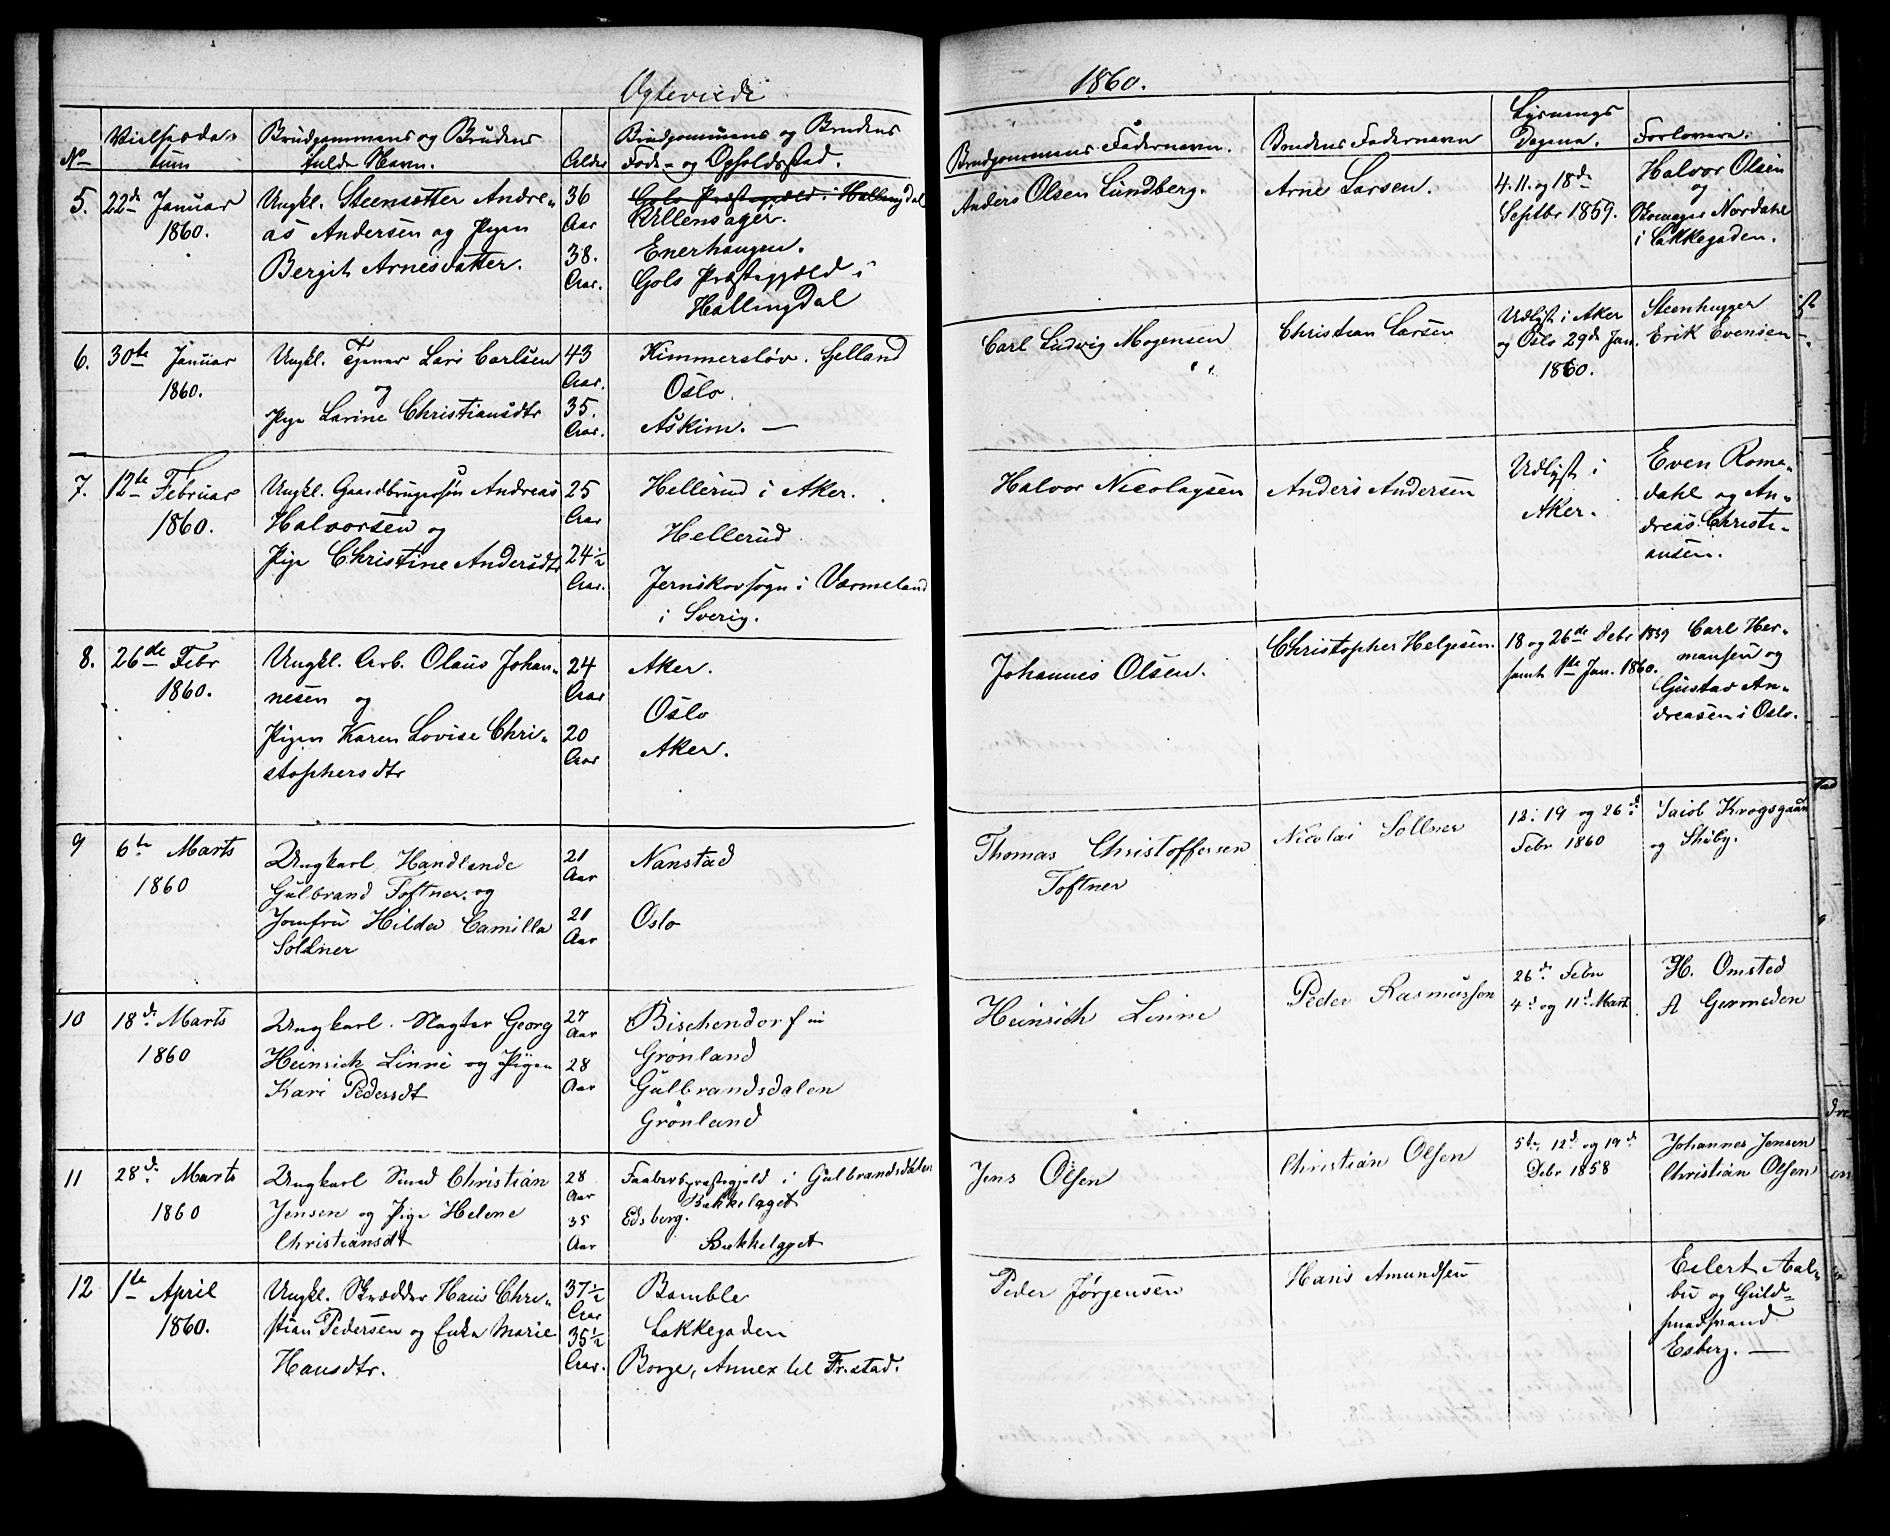 Egteviede 1860.
No
Vielsesda-
tum
Brudgommens og Brudens
fulde Navn.
Alder
Brudgommens og Brudens
Føde- og Opholdsstad.
Brudgommens Fadernavn.
Brudens Fadernavn
Lysnings
Dagene.
Forlovere.
5.
22de Januar
1860.
Ungkl. Steensætter Andre-
as Andersen og Pigen
Bergit Arnesdatter.
36
Aar
38.
Aar.
Gols Præstegjæld i Hallingdal
Ullensager.
Enerhaugen.
Gols Præstegjæld i
Hallingdal
Anders Olsen Lundberg.
Arne Larsen.
4. 11. og 18de
Septbr 1859.
Halvor Olsen
og
Skomager Nordahl
i Lakkegaden.
6.
30te Januar
1860.
Ungkl. Tjener Lars Carlsen
og
Pige Larine Christiansdtr
43
Aar.
35.
Aar.
Kimmersløv. Sjelland
Oslo.
Askim. —
Carl Ludvig Mogensen
Christian Larsen
Udlyst i Aker
og Oslo 29de Jan.
1860.
Steenhugger
Erik Evensen
7.
12te Februar
1860.
Ungkl. Gaardbrugersøn Andreas
Halvorsen og
Pige Christine Andersdtr
25
Aar
24 1/2
Aar.
Hellerud i Aker.
Hellerud
Jernskovsogn i Værmeland
i Sverig.
Halvor Nicolaysen
Anders Andersen
Udlyst i
Aker.
Even Rome-
dahl og An-
dreas Christi-
ansen.
8.
26de Febr
1860.
Ungkl. Arb. Olaus Johan-
nesen og
Pigen Karen Lovise Chri-
stophersdtr
24
Aar
20
Aar
Aker.
Oslo
Aker.
Johannes Olsen.
Christopher Helgesen.
18 og 26de Debr 1859
samt 1ste Jan. 1860.
Carl Her-
mansen og
Gustav An-
dreasen i Oslo.
9
6te Marts
1860
Ungkarl Handlende
Gulbrand Toftner og
Jomfru Hilda Camilla
Sollner
21
Aar
21
Aar
Nanstad
Oslo
Thomas Christoffersen
Toftner
Nicolai Sollner
12. 19 og 26d
Febr 1860
Jacob Krogsgaard
og Thoby.
10
18d Marts
1860
Ungkarl. Slagter Georg
Heinrich Linne og Pigen
Kari Pedersdt
27
Aar
28
Aar
Bischendorf in
Grønland
Gulbrandsdalen
Grønland
Heinrich Linne
Peder Rasmussen
26d Febr
4d og 11d Marts
H. Omsted
A Germeden
11
28d Marts
1860
Ungkarl Smed Christian
Jensen og Pige Helene
Christiansdt
28
Aar
35
Aar
Faabergpræstegjeld i Gulbrandsdalen
Bækkelaget
Edsberg.
Bækkelaget
Jens Olsen
Christian Olsen
5te 12d og 19d
Debr 1858
Johannes Jensen
Christian Olsen
12
1ste April
1860.
Ungkl. Skrædder Hans Chri-
stian Pedersen og Enka Marie
Hansdtr.
37 1/2
Aar
35 1/2
Aar.
Bamble
Lakkegaden
Borge, Annex til Fr.stad.
Peder Jørgensen
Hans Amundsen
Eilert Aal-
bu og Guld-
smedsvend
Esberg. —